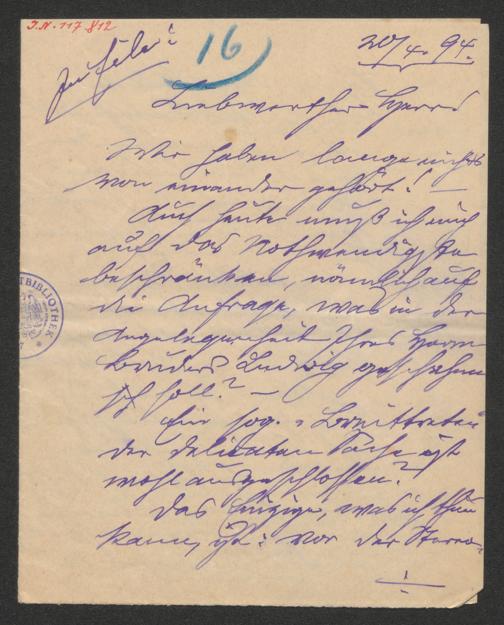 I.N. 117.812
16
20/4. 94.
Liebwerther Herr!
Wir haben lange nichts
von einander gehört! —
Auch heute muß ich mich
auf das Nothwendigste
beschränken, nämlich auf
die Anfrage, was in der
Angelegenheit Ihres Herrn
Bruders Ludwig geschehen
soll? —
Ein sog. Breittreten
der delicaten Sache ist
wohl ausgeschlossen?
Das Einzige, was ich thun
kann, ist: vor der
BIBLIOTHEK